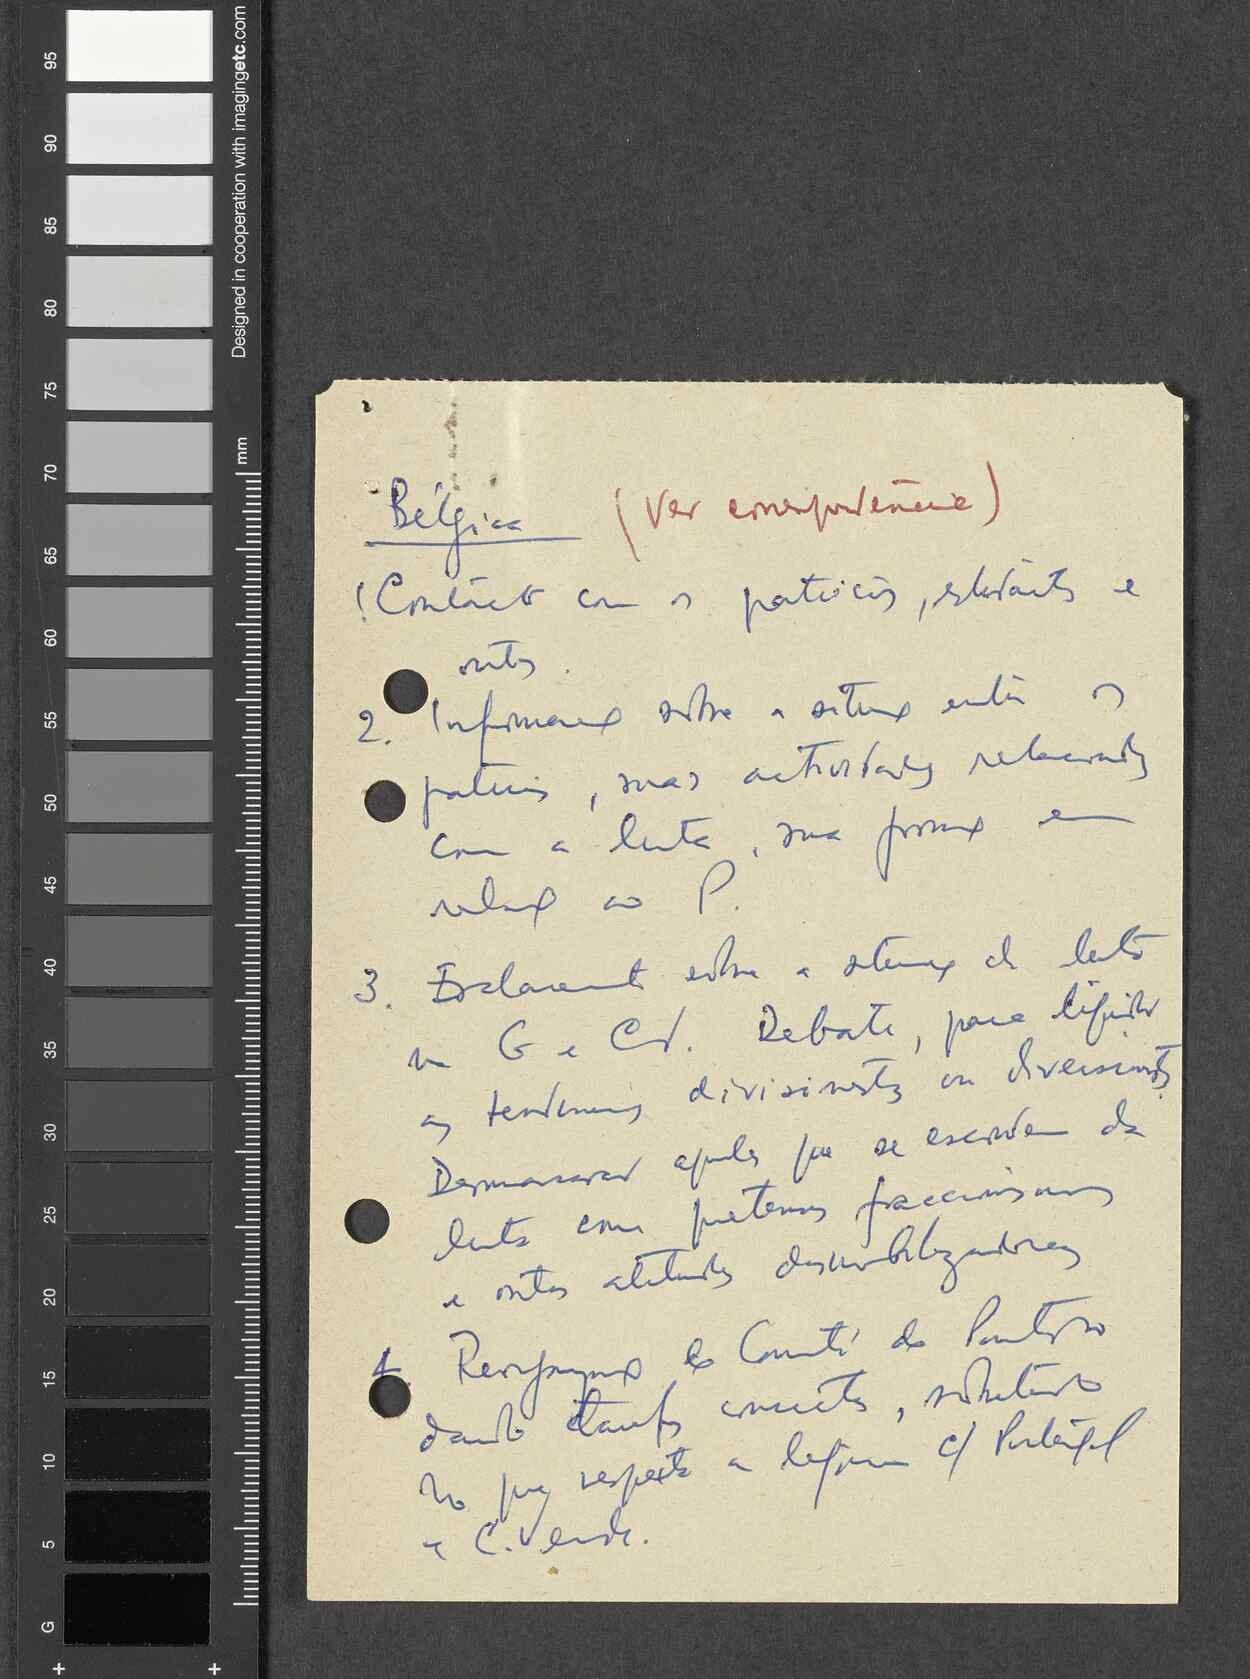 95
90
85
80
75
70
65
60
55
50
45
40
35
30
25
20
15
10
5
G
mm
Designed in cooperation with imagingetc.com
Bélgica (Ver correspondência)
1 Contacto com os patrícios, estudantes e
outros.
2. Informação sobre a situação entre os
patrícios, suas actividades relacionadas
com a luta, sua posição em
relação ao P.
3. Esclarecimento sobre a situação da luta
na G e CV. Debate, para liquidar
as tendências divisionistas ou diversionistas.
Desmascarar aqueles que se escondem da
luta com pretensos fraccionismos
e outras atitudes desmobilizadoras
4. do Comité do
dando tarefas concretas, sobretudo
no que respeita a ligação c/ Portugal
e C. Verde.